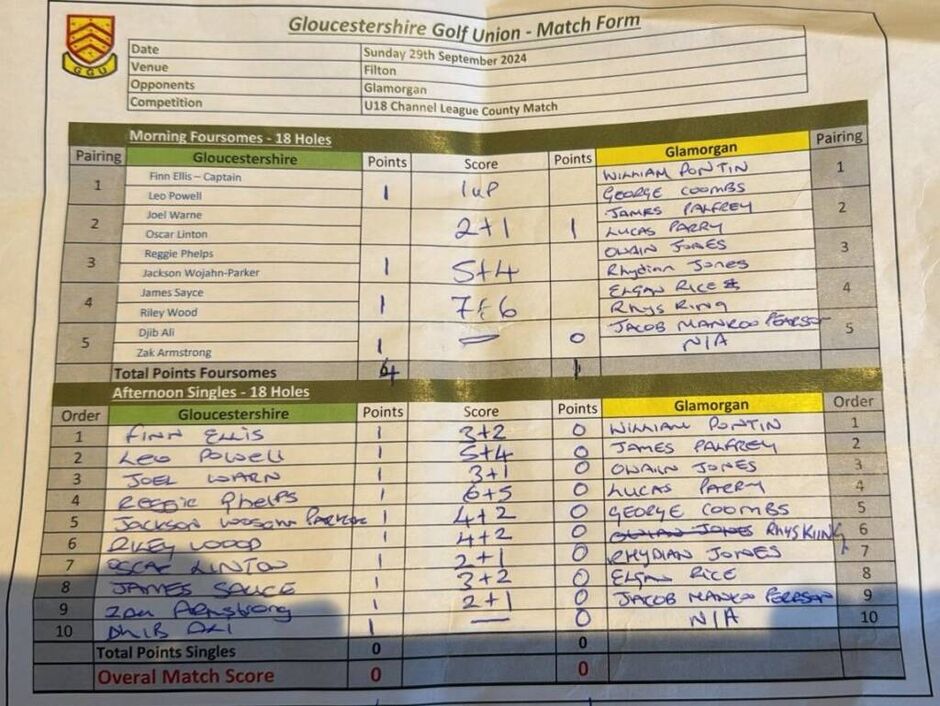 Gloucestershire Golf Union - Match Form
GGU
Date Sunday 29th September 2024
Venue Filton
Opponents Glamorgan
Competition U18 Channel League County Match
Morning Foursomes - 18 Holes
Pairing Gloucestershire Points Score Points Glamorgan Pairing
1 Finn Ellis – Captain WILLIAM PONTIN 1
Leo Powell 1 1up GEORGE COOMBS
2 Joel Warne JAMES PALFREY 2
Oscar Linton 2+1 1 LUCAS PARRY
3 Reggie Phelps OWAIN JONES 3
Jackson Wojahn-Parker 1 5+4 Rhydian Jones
4 James Sayce ELGAN RICE 4
Riley Wood 1 7+6 Rhys RING
5 Djib Ali JACOB MANKOO PEARSON 5
Zak Armstrong 1 — 0 N/A
Total Points Foursomes 4 1
Afternoon Singles - 18 Holes
Order Gloucestershire Points Score Points Glamorgan Order
1 FINN ELLIS 1 3+2 0 WILLIAM PONTIN 1
2 LEO POWELL 1 5+4 0 JAMES PALFREY 2
3 JOEL WARN 1 3+1 0 OWAIN JONES 3
4 REGGIE Phelps 1 6+5 0 LUCAS PARRY 4
5 JACKSON PARKER 1 4+2 0 GEORGE COOMBS 5
6 RILEY WOOD 1 4+2 0 JONES RHYS 6
7 OSCAR LINTON 1 2+1 0 RHYDIAN JONES 7
8 JAMES SAUCE 1 3+2 0 ELGAN RICE 8
9 ZAK ARMSTRONG 1 2+1 0 JACOB MANKOO PERESON 9
10 DHIB ALI 1 — 0 N/A 10
Total Points Singles 0 0
Overal Match Score 0 0